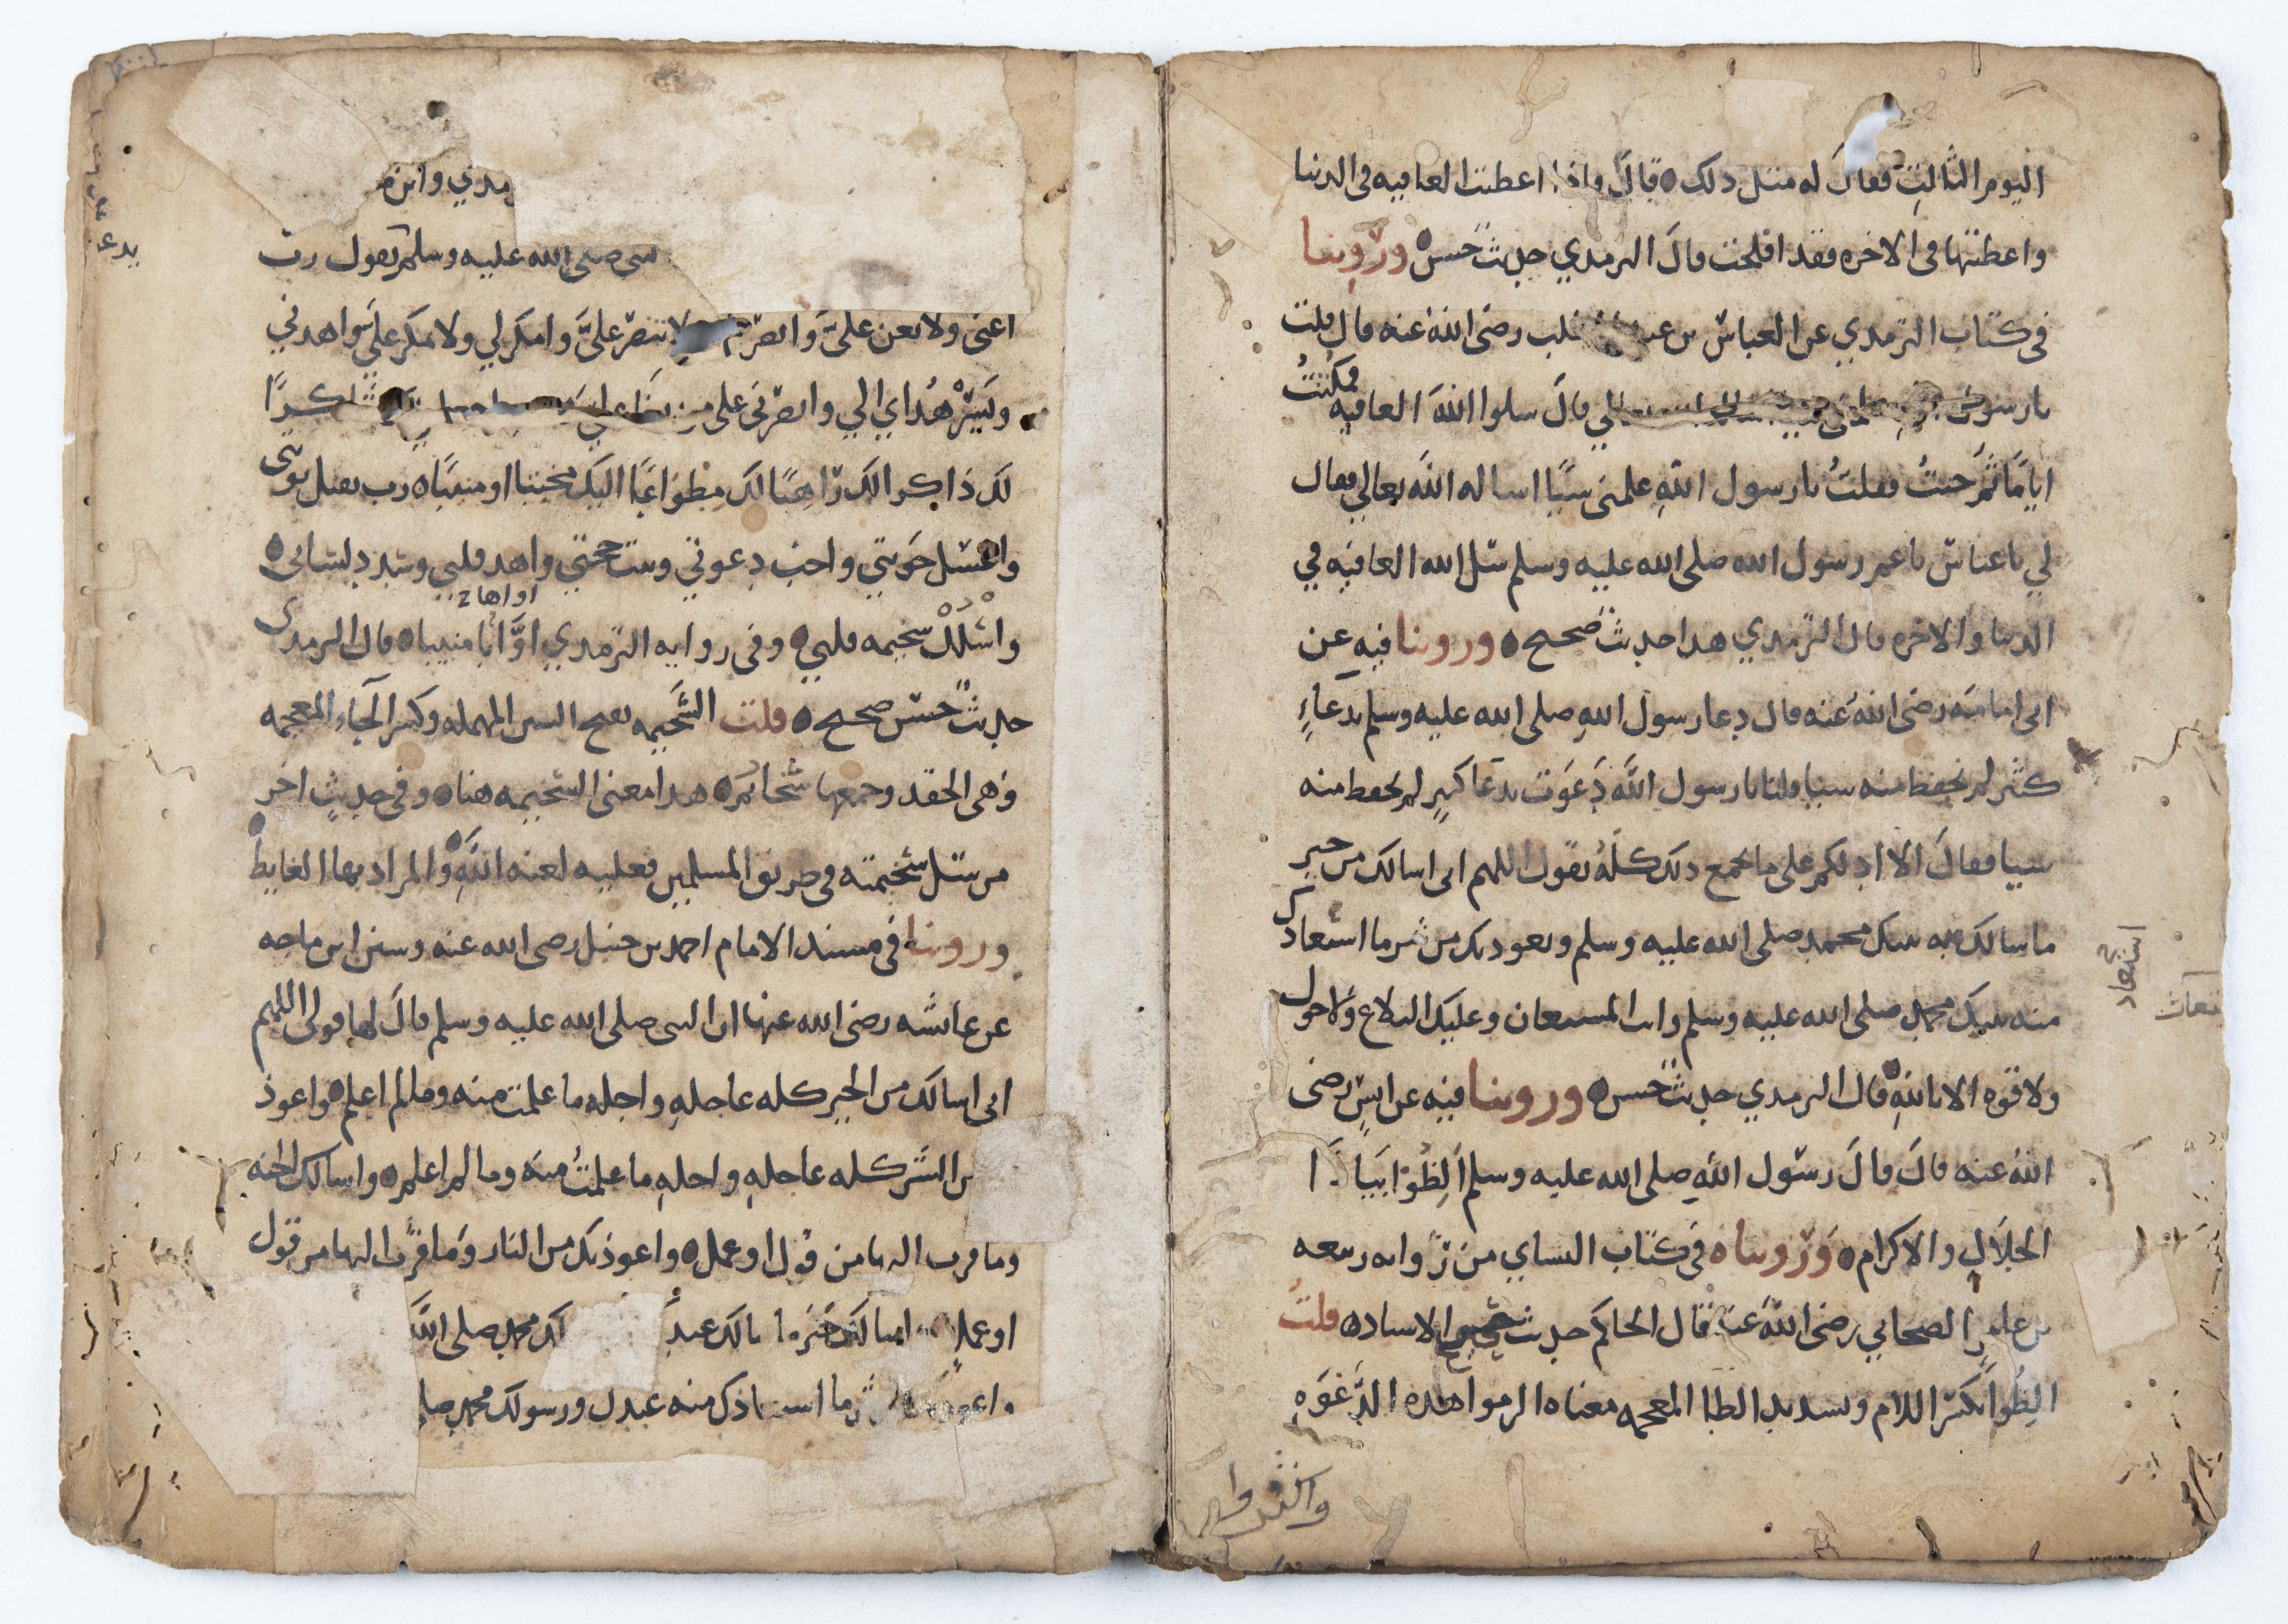 اليوم الثالث فقال له مثل ذلك قال واذا اعطيت العافيه في الدنيا
واعطيتها في الاخره فقد افلحت قال الترمذي حديث حسن وروينا
في كتاب الترمذي عن العباس بن عبد المطلب رضى الله عنه قال قلت
يارسول علمنى قال سلوا الله العافيه فمكثت
اياما ثم جيت فقلت يارسول الله علمنى شيا اساله الله تعالى فقال
لي ياعباس ياعم رسول الله صلى الله عليه وسلم سل الله العافيه في
الدنيا والاخره قال الترمذي هذا حديث صحيح وروينا فيه عن
ابى امامه رضى الله عنه قال دعا رسول الله صلى الله عليه وسلم بدعاء
كثير لم نحفظ منه شيا قلنا يارسول الله دعوت بدعا كبير لم نحفظ منه
شيا فقال الا ادلكم على ما يجمع ذلك كله تقول اللهم انى اسالك من خير
ما سالك منه نبيك محمد صلى الله عليه وسلم ونعوذ بك من شر ما استعاذك
منه نبيك محمد صلى الله عليه وسلم وانت المستعان وعليك البلاغ ولا حول
ولا قوه الا بالله قال الترمذي حديث حسن وروينا فيه عن انس رضى
الله عنه قال قال رسول الله صلى الله عليه وسلم الظوا بيا ذا
الجلال والاكرام وروينا ه في كتاب النساي من روايه ربيعه
بن عامر الصحابي رضى الله عنه قال الحاكم حديث صحيح الاسناد قلت
الظوا بكسر اللام وتشديد الظا المعجمه معناه الزموا هذه الدعوه
استعاذ
مذي وابن م
صلى الله عليه وسلم يقول رب
اعنى ولا تعن علي وانصرنى ولا تنصر علي وامكر لي ولا تمكر علي واهدني
ويسر هداي الي وانصرنى على من بغا علي شاكرا
لك ذاكرا لك راهبا لك مطواعا اليك مخبتا او منيبا رب تقبل توبتى
واغسل حوبتي واجب دعوتي وثبت حجتي واهد قلبي وسدد لسانى
اواها
واسلل سخيمه قلبي وفى روايه الترمذي اواها منيبا قال الترمدى
حديث حسن صحيح قلت السخيمه بفتح السين المهمله وكسر الخاء المعجمه
وهى الحقد وجمعها سخائم هذا معنى السخيمه هنا وفى حديث اخر
من سل سخيمته فى طريق المسلمين فعليه لعنه الله والمراد بها الغايط
وروينا في مسند الامام احمد بن حنبل رضى الله عنه وسنن ابن ماجه
عن عائشه رضى الله عنها ان النبى صلى الله عليه وسلم قال لها قولى اللهم
انى اسالك من الخير كله عاجله واجله ما علمت منه وما لم اعلم واعوذ
من الشر كله عاجله واجله ما علمت منه وما لم اعلم واسالك الجنه
وما قرب اليها من قول او عمل واعوذ بك من النار وما قرب اليها من قول
او عمل اسالك خير ما سالك عبد ك محمد صلى الله
واعوذ ما استعاذك منه عبدك ورسولك محمد صلى